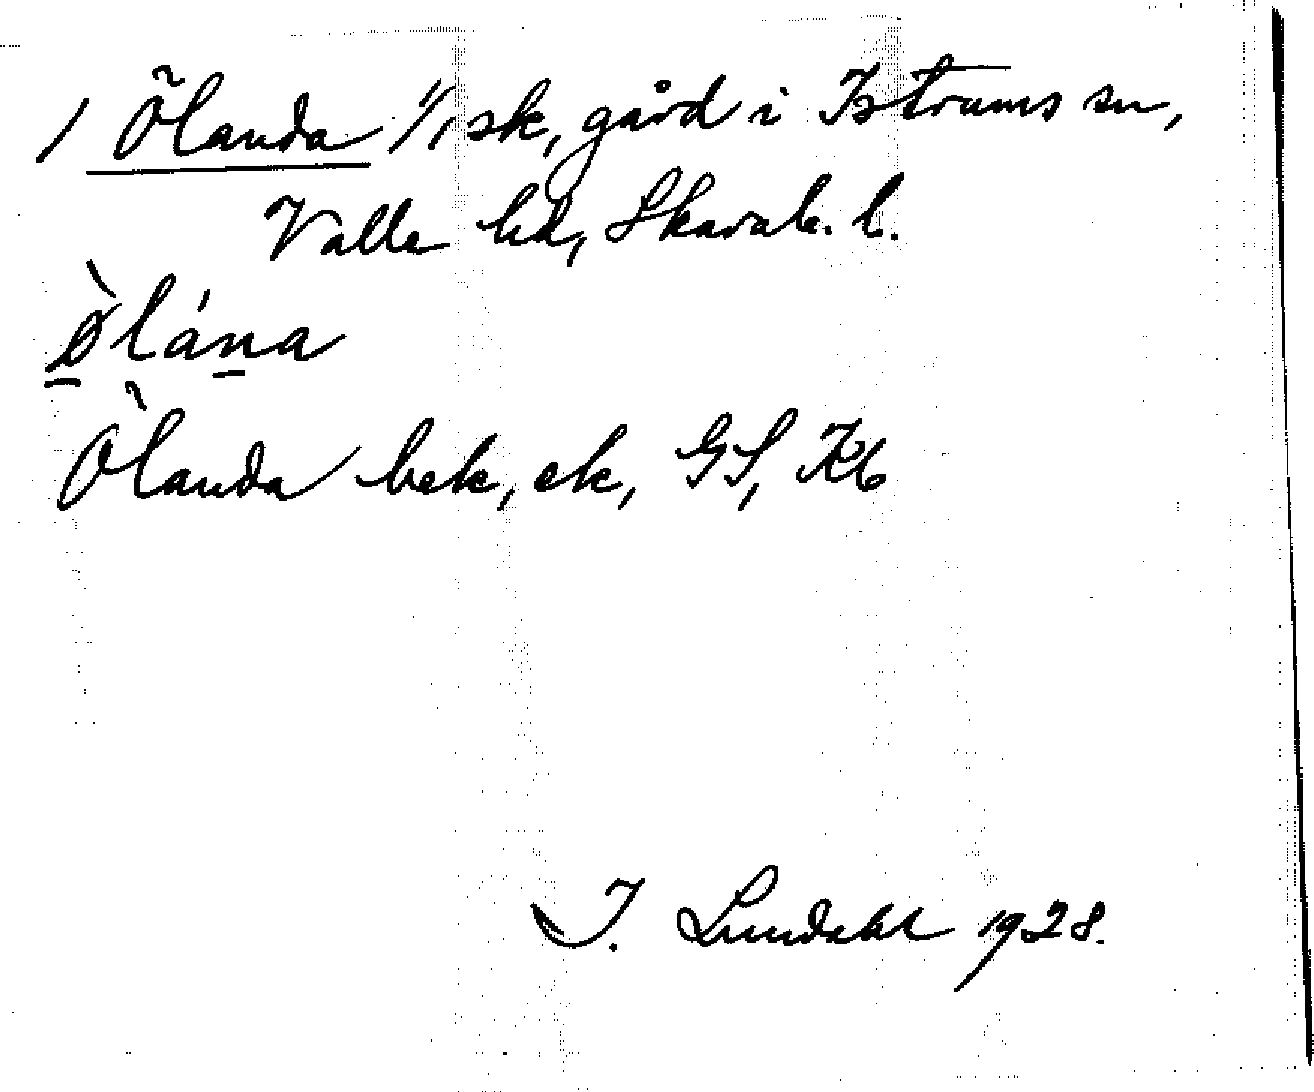 1 Ölanda 1/1 sk, gård i Istrums sn,
Valle hd, Skarab. l.
ø̀lána
Ölanda bek, ek, GS, Kb
I. Lundahl 1928.